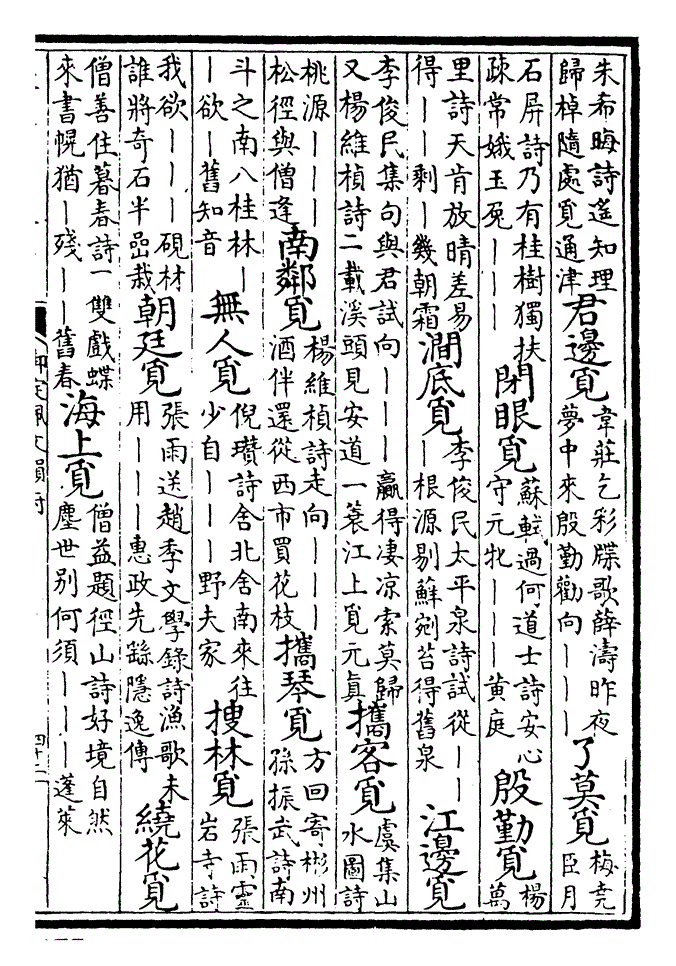 朱希晦詩遥知理
歸棹隨處覓通津
君邊覓
韋莊乞彩牋歌薛濤昨夜
夢中來殷勤勸向｜｜｜
了莫覓
梅堯
臣月
石屏詩乃有桂樹獨扶
疎常娥玉兔｜｜｜
閉眼覓
蘇軾過何道士詩安心
守元牝｜｜｜黄庭
殷勤覓
楊
萬
里詩天肯放晴差易
得｜｜剩｜幾朝霜
澗底覓
李俊民太平泉詩試從｜｜
｜根源剔蘚剜苔得舊泉
江邊覓
李俊民集句與君試向｜｜｜贏得凄凉索莫歸
又楊維楨詩二載溪頭見安道一蓑江上覓元真
攜客覓
虞集山
水圖詩
桃源｜｜｜
松徑與僧逢
南鄰覓
楊維楨詩走向｜｜｜
酒伴還從西市買花枝
攜琴覓
方回寄郴州
孫振武詩南
斗之南八桂林｜
｜欲｜舊知音
無人覓
倪瓚詩舍北舍南來往
少自｜｜｜野夫家
搜林覓
張雨靈
岩寺詩
我欲｜｜｜硯材
誰將奇石半嵒栽
朝廷覓
張雨送趙季文學錄詩漁歌未
用｜｜｜惠政先繇隱逸傳
繞花覓
僧善住暮春詩一雙戲蝶
來書幌猶｜殘｜｜舊春
海上覓
僧益題徑山詩好境自然
塵世别何須｜｜｜蓬萊
御定佩文韻府